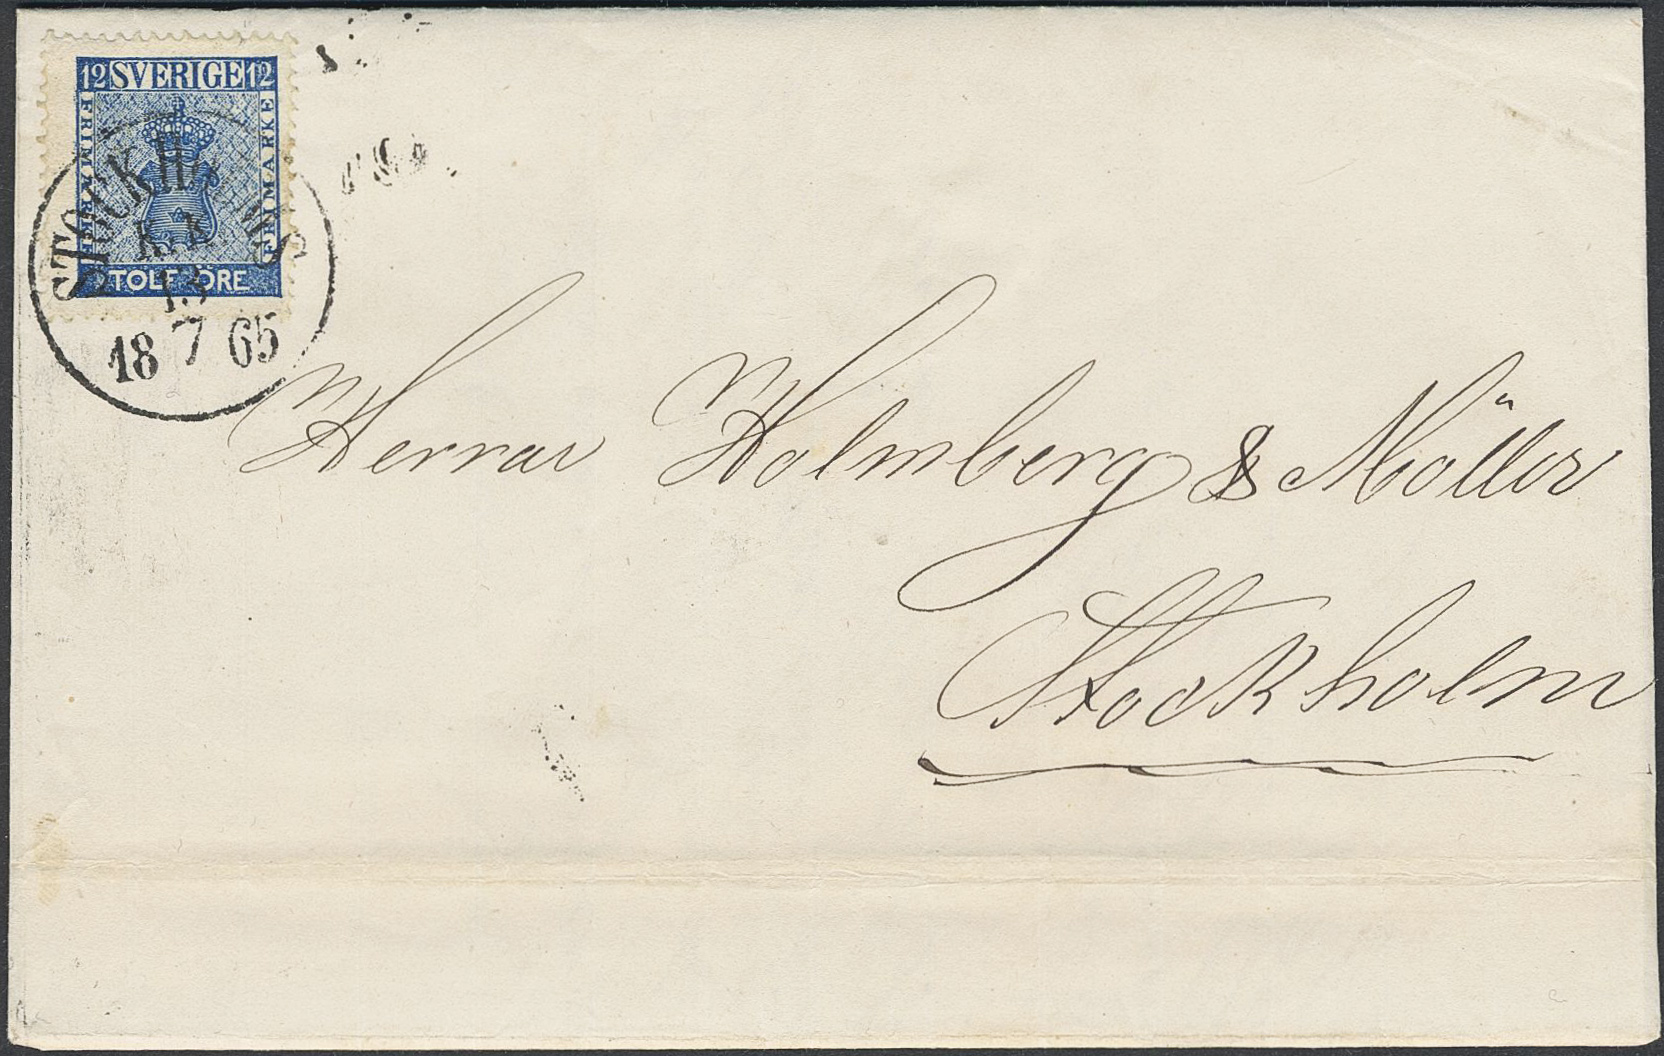 12 SVERIGE 12
FRIMÄRKE
FRIMÄRKE
TOLF ÖRE
STOCKHOLMS
13
18 7 65
Herrar Holmberg & Möller
Stockholm